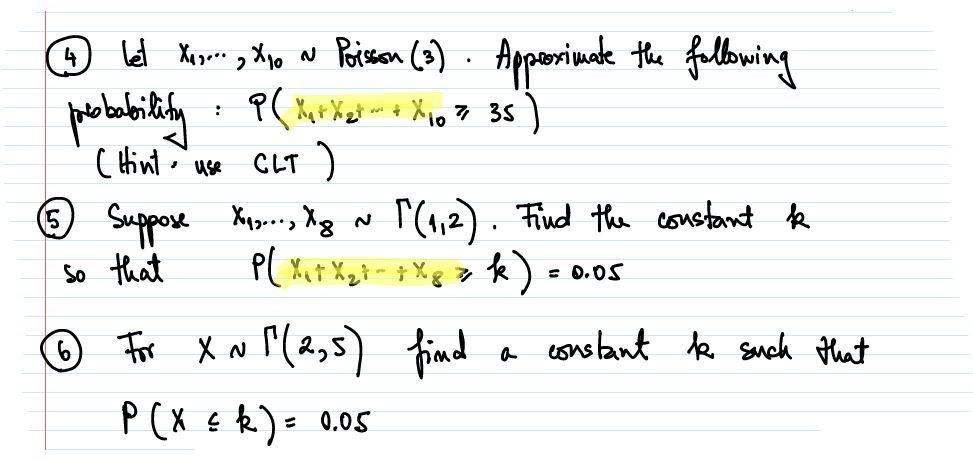 ④ Let X₁,..., X₁₀ ~ Poisson (3). Approximate the following
probability : P( X₁+X₂+...+ X₁₀ ≥ 35 )
(Hint: use CLT )
⑤ Suppose X₁,..., X₈ ~ Γ(1,2). Find the constant k
so that P( X₁+X₂+..+X₈ ≥ k ) = 0.05
⑥ For X ~ Γ(2,5) find a constant k such that
P ( X ≤ k ) = 0.05